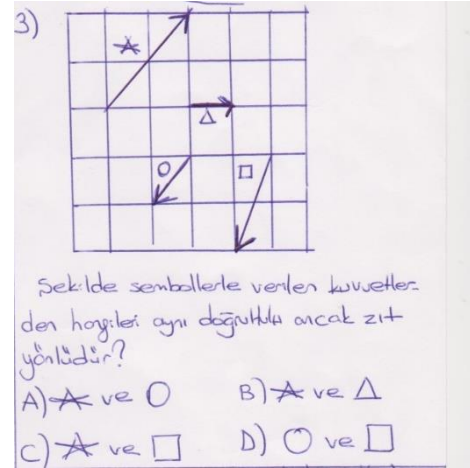 3)
Şekilde sembollerle verilen kuvvetler-
den hangileri aynı doğrultulu ancak zıt
yönlüdür?
A) ☆ ve ○ B) ☆ ve △
C) ☆ ve □ D) ○ ve □